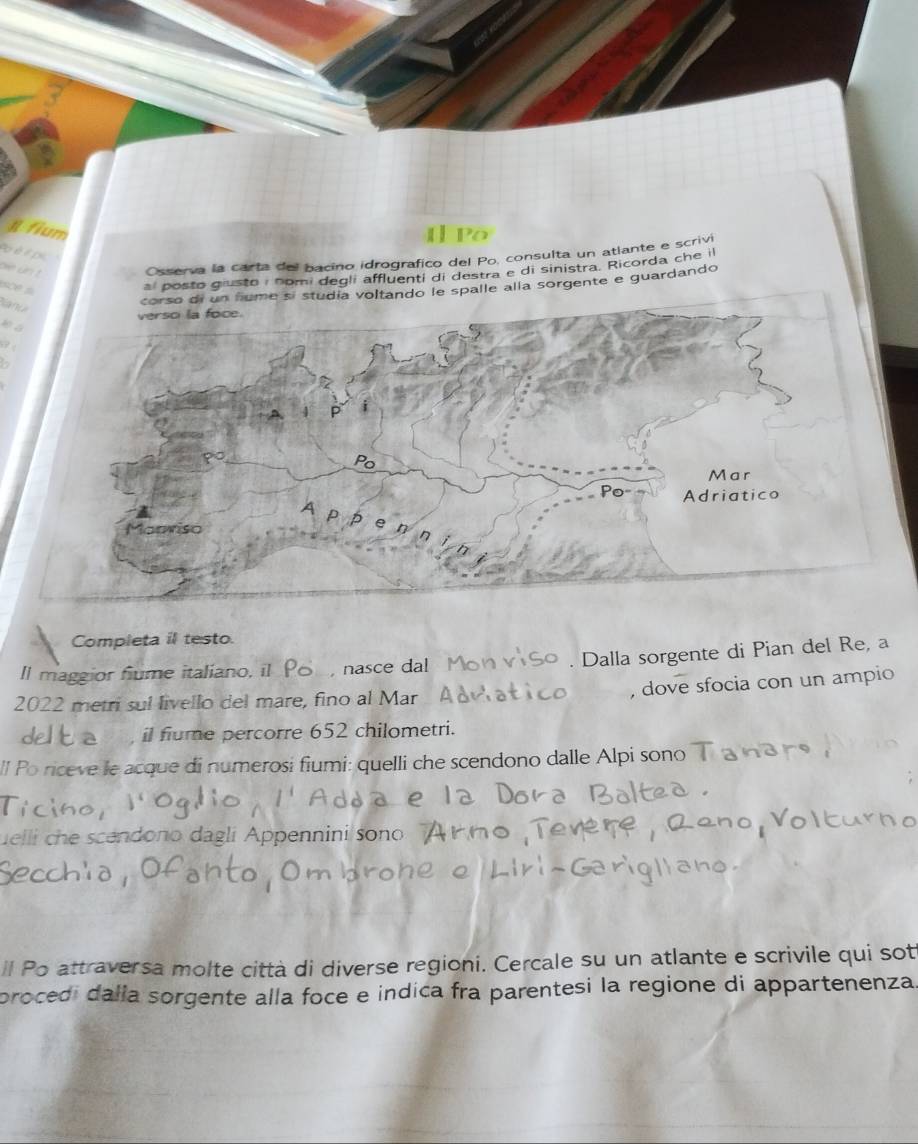 Il fium
Il Po
Osserva la carta del bacino idrografico del Po, consulta un atlante e scrivi
al posto giusto i nomi degli affluenti di destra e di sinistra. Ricorda che il
corso di un fiume si studia voltando le spalle alla sorgente e guardando
verso la foce.
A l p i
Po
Po
Mar
Adriatico
Po
Monviso
Appennini
Completa il testo.
Il maggior fiume italiano, il Po, nasce dal Monviso. Dalla sorgente di Pian del Re, a
2022 metri sul livello del mare, fino al Mar Adriatico, dove sfocia con un ampio
delta, il fiume percorre 652 chilometri.
Il Po riceve le acque di numerosi fiumi: quelli che scendono dalle Alpi sono Tanaro,
Ticino, l'Oglio, l'Adda e la Dora Baltea.
uelli che scendono dagli Appennini sono Arno, Tevere, Reno, Volturno
Secchia, Ofanto, Ombrone e Liri-Garigliano.
il Po attraversa molte città di diverse regioni. Cercale su un atlante e scrivile qui sott
procedi dalla sorgente alla foce e indica fra parentesi la regione di appartenenza.